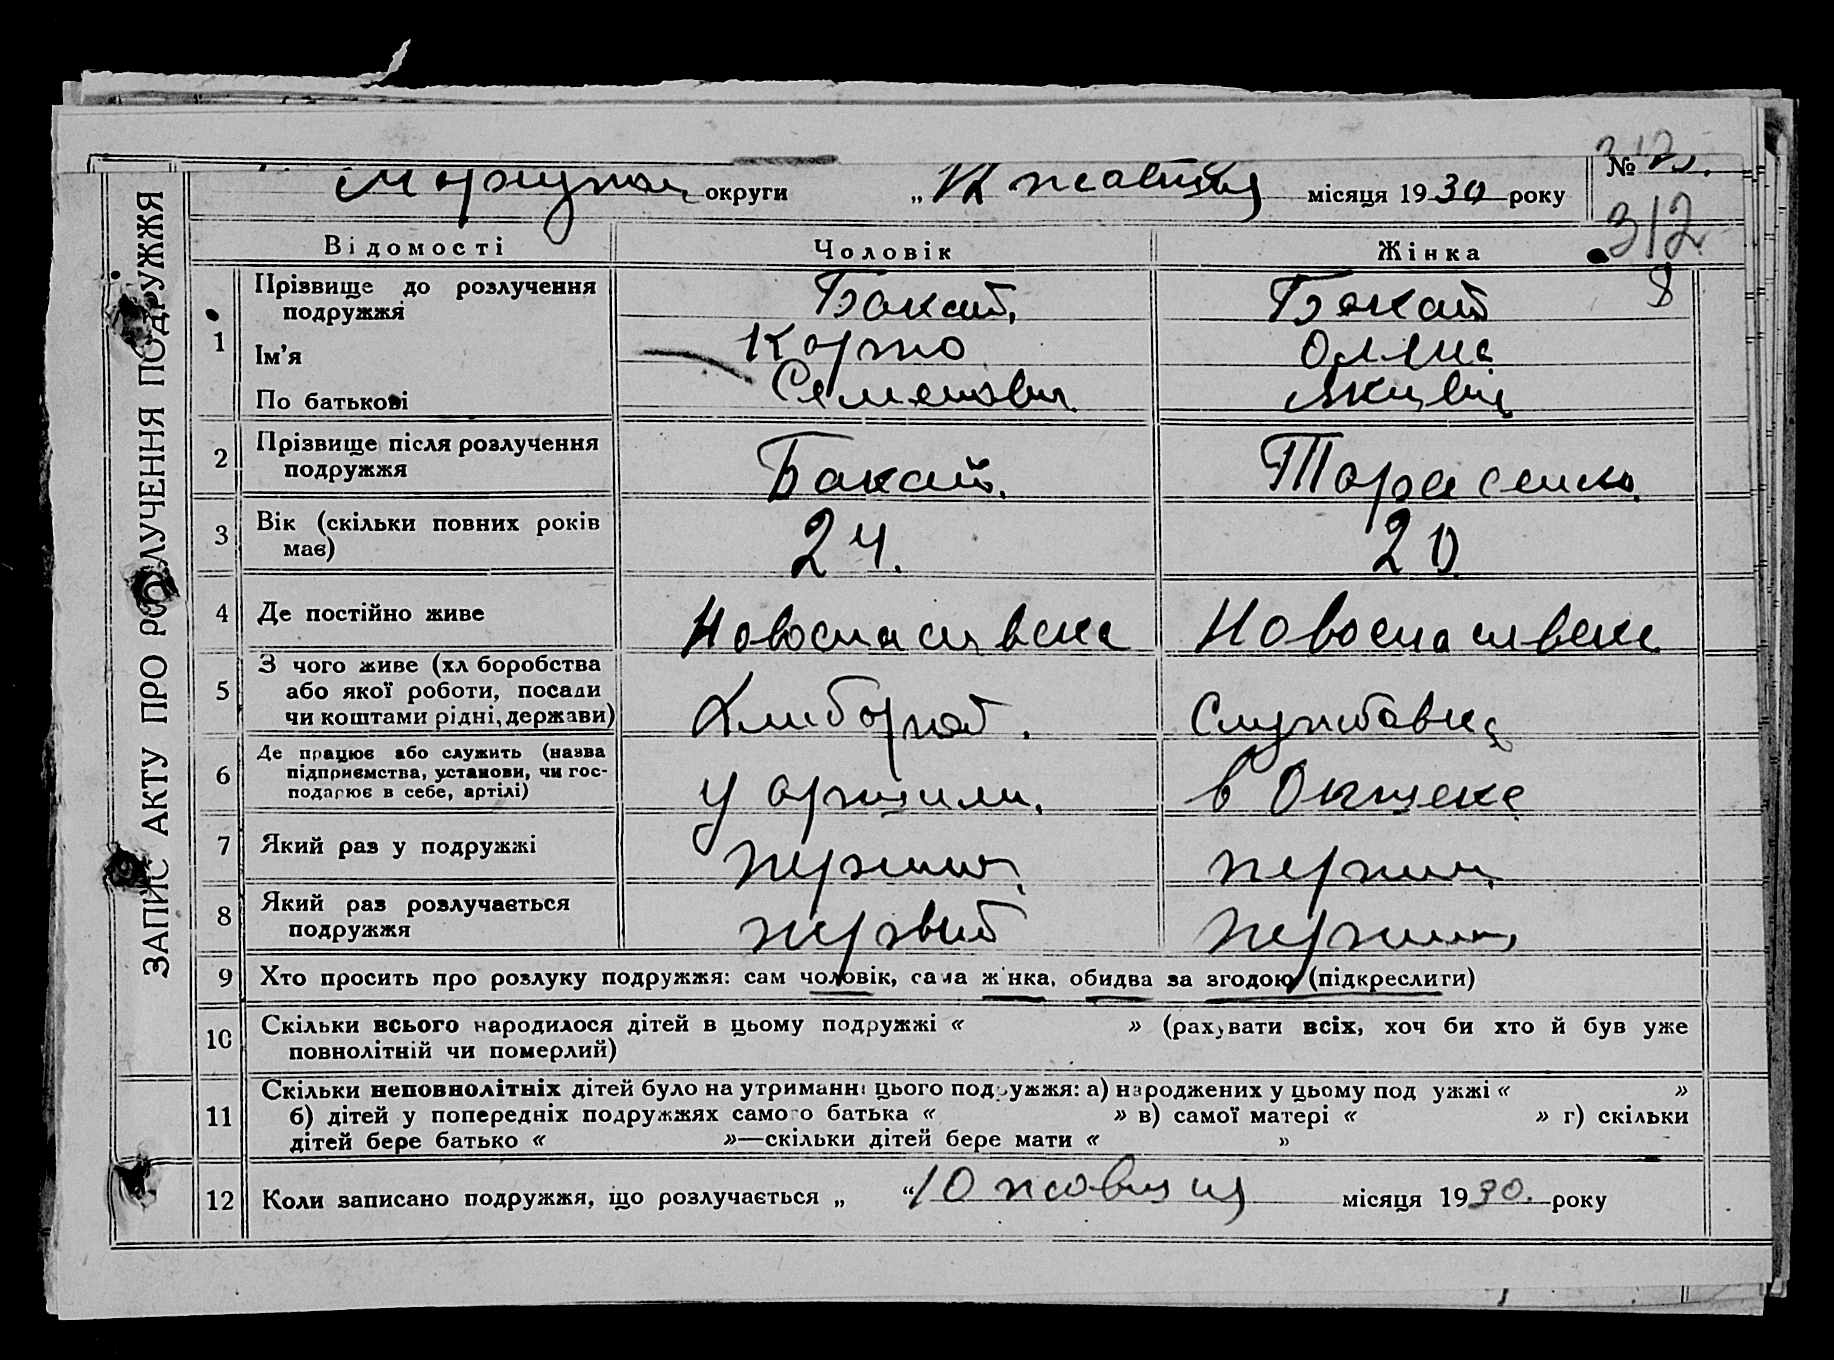 ЗАПИС АКТУ ПРО РОЗЛУЧЕННЯ ПОДРУЖЖЯ
округи „12 жовтня місяця 1930 року
№
312
Відомості Чоловік Жінка
8
1 Прізвище до розлучення подружжя Бакай. Бакай
Ім'я Карпо Оляна
По батькові Семенович
2 Прізвище після розлучення подружжя Бакай. Тарасенко.
3 Вік (скільки повних років має) 24. 20
4 Де постійно живе Новоспасівське Новоспасівське
5 З чого живе (хліборобства або якої роботи, посади чи коштами рідні, держави) Службовец
6 Де працює або служить (назва підприємства, установи, чи господарює в себе, артілі) у артили. в
7 Який раз у подружжі
8 Який раз розлучається подружжя первий
9 Хто просить про розлуку подружжя: сам чоловік, сама жінка, обидва за згодою (підкреслити)
10 Скільки всього народилося дітей в цьому подружжі « » (рахувати всіх, хоч би хто й був уже
повнолітній чи померлий)
11 Скільки неповнолітніх дітей було на утриманні цього подружжя: а) народжених у цьому подружжі « »
б) дітей у попередніх подружжях самого батька « » в) самої матері « » г) скільки
дітей бере батько « »—скільки дітей бере мати « »
12 Коли записано подружжя, що розлучається „ “10 жовтня місяця 1930. року